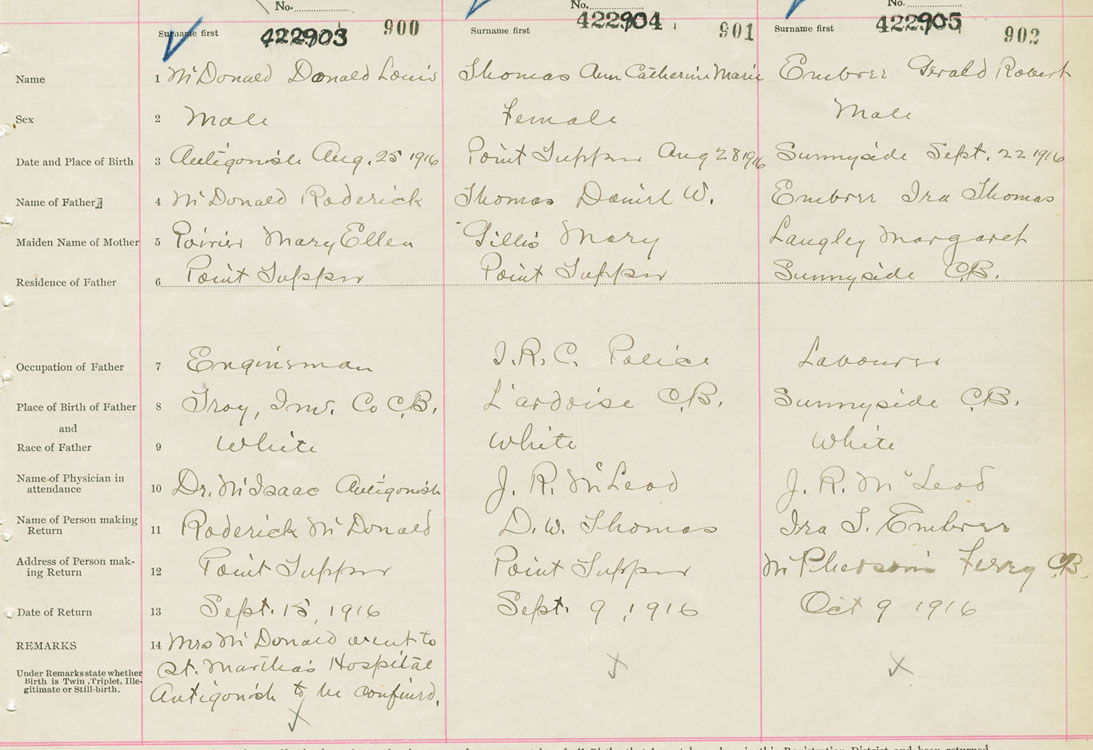 No. No. No.
Surname first 422903 900 Surname first 422904 901 Surname first 422905 902
Name 1 McDonald Donald Louis Thomas Ann Catherine Marie Embree Gerald Robert
Sex 2 Male Female Male
Date and Place of Birth 3 Antigonish Aug. 25 1916 Point Tupper Aug 28 1916 Sunnyside Sept. 22 1916
Name of Father 4 McDonald Roderick Thomas Daniel W. Embree Ira Thomas
Maiden Name of Mother 5 Poirier Mary Ellen Gillis Mary Langley Margaret
Residence of Father 6 Point Tupper Point Tupper Sunnyside C.B.
Occupation of Father 7 Engineman I.R.C. Police Labourer
Place of Birth of Father 8 Troy, Inv. Co C.B. L'ardoise C.B. Sunnyside C.B.
and
Race of Father 9 White White White
Name of Physician in
attendance 10 Dr. McIsaac Antigonish J. R. McLeod J. R. McLeod
Name of Person making
Return 11 Roderick McDonald D. W. Thomas Ira T. Embree
Address of Person mak-
ing Return 12 Point Tupper Point Tupper McPherson's Ferry C.B.
Date of Return 13 Sept. 15, 1916 Sept. 9, 1916 Oct 9 1916
REMARKS 14 Mrs McDonald went to
Under Remarks state whether St. Martha's Hospital
Birth is Twin, Triplet, Ille-
gitimate or Still-birth. Antigonish to be confined.